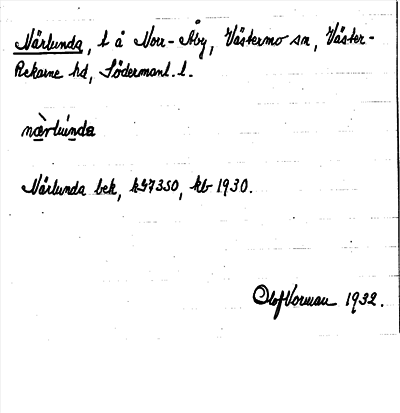 Närlunda, t å Norr-Åby, Västermo sn, Väster-
Rekarne hd, Södermanl. l.
nærlunda
Närlunda bek, k
Olof Vorman 1932.